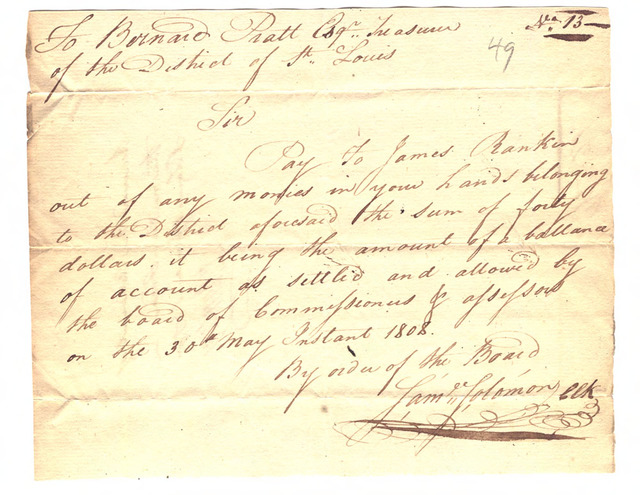 To Bernard Pratt Esqr. Treasurer
No. 13
of the District of St. Louis
49
Sir
Pay To James Rankin
out of any monies in your hands belonging
to the District aforesaid the sum of forty
dollars. it being the amount of a ballance
of account as settled and allowed by
the board of Commissioners & assessors
on the 30th May Instant 1808.
By order of the Board
Saml. Solomon Clk